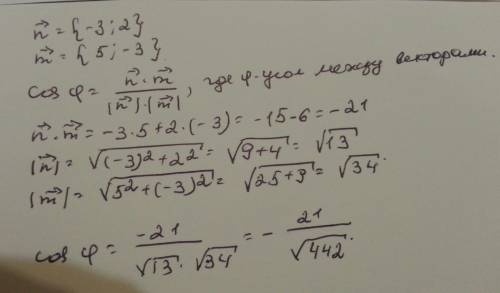 n⃗ = {-3; 2}
m⃗ = {5; -3}
cos φ = n⃗ · m⃗ / |n⃗| · |m⃗|, где φ-угол между векторами.
n⃗ · m⃗ = -3 · 5 + 2 · (-3) = -15 - 6 = -21
|n⃗| = √((-3)² + 2²) = √(9+4) = √13
|m⃗| = √(5² + (-3)²) = √(25+9) = √34.
cos φ = -21 / √13 · √34 = - 21 / √442.